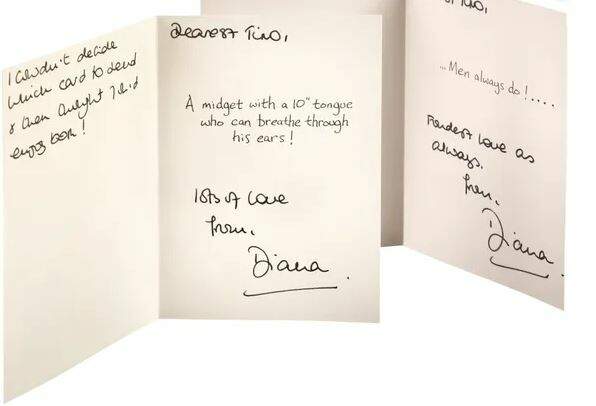 I couldn't decide
which card to send
& then thought
enjoy both!
Dearest Tino,
A midget with a 10" tongue
who can breathe through
his ears!
lots of love
from,
Diana.
st Tino,
...Men always do!....
Fondest love as
always.
from,
Diana.